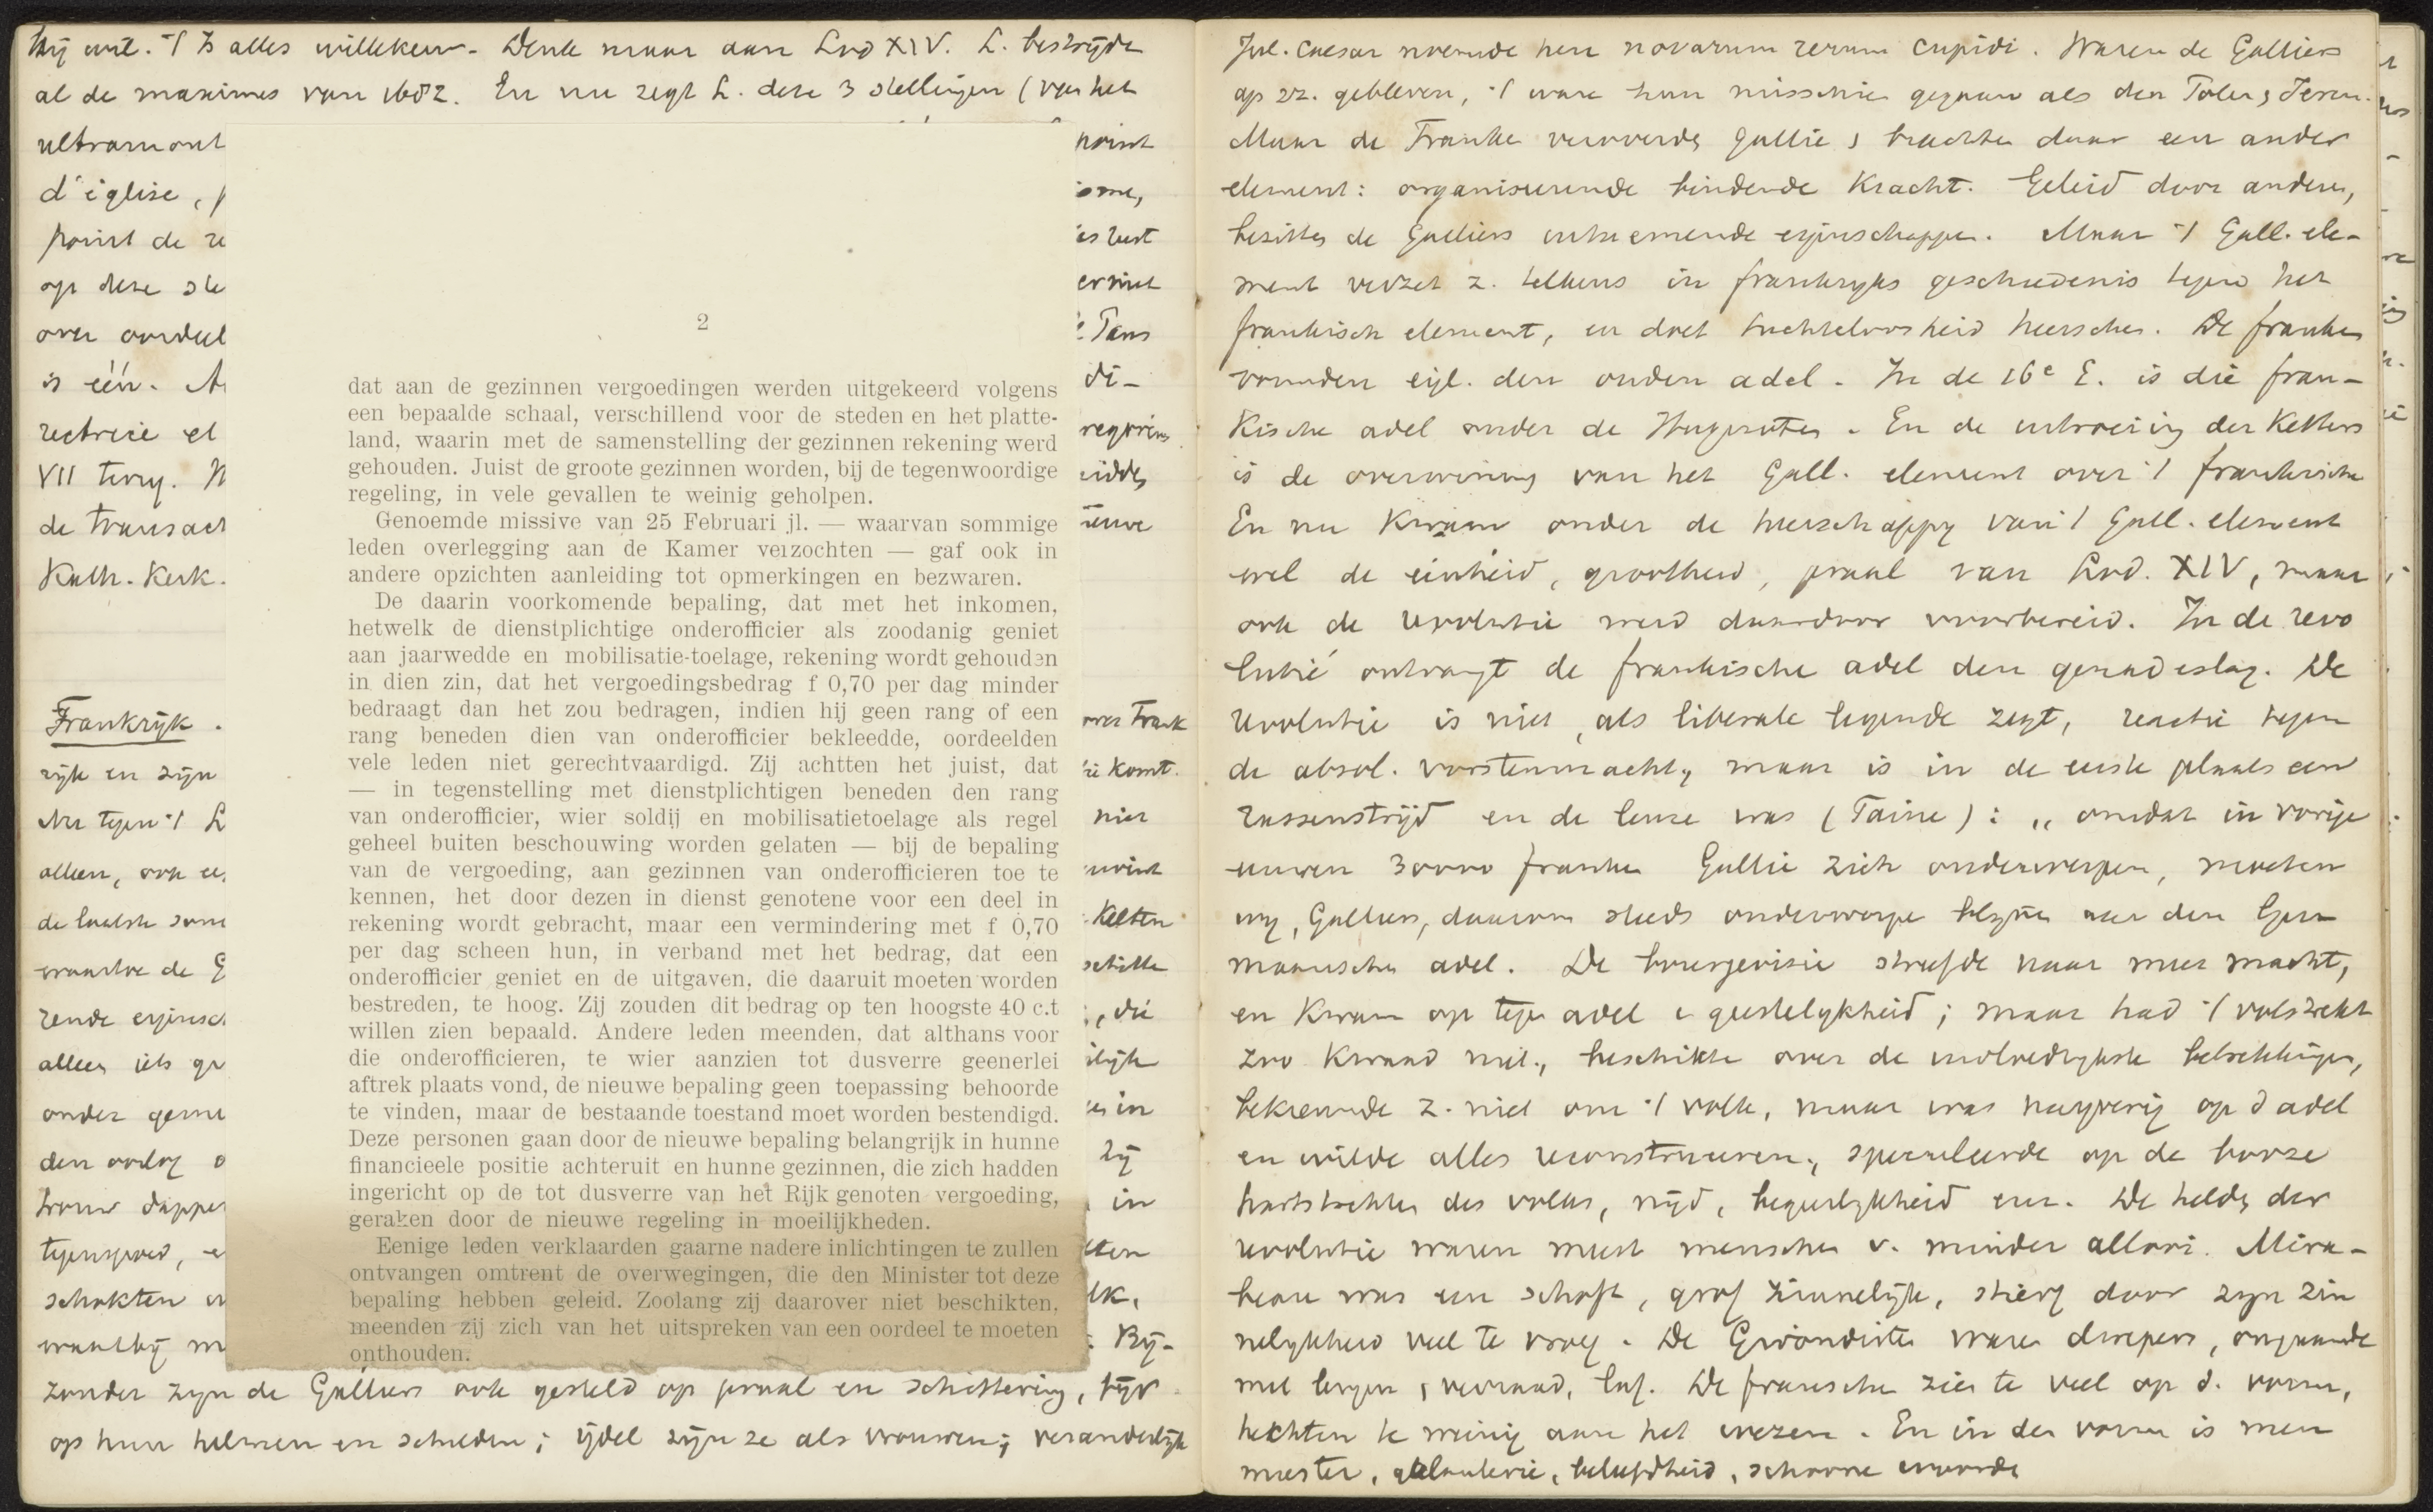 hij wil. 't Is alles willekeur. Denk maar aan Lod XIV. L. bestrijdt
al de maximes van 1682. En nu zegt L. deze 3 stellingen (van het
ultramont
d'église, p
point de re
op deze ste
over oordeel
is één. A
rectrice et
VII terug. N
de transact
Kath. Kerk.
Frankrijk.
rijk en zijn
alleen, ook
de laatste
waartoe de G
allen iets
onder
den oorlog o
trouw dapper
tegenspoed, e
schokten
want bij m
zonder zijn de Galliers ook gesteld op praal en schittering, bijv
op hun helmen en schilden; ijdel zijn ze als vrouwen; veranderlijk
2
dat aan de gezinnen vergoedingen werden uitgekeerd volgens
een bepaalde schaal, verschillend voor de steden en het platte-
land, waarin met de samenstelling der gezinnen rekening werd
gehouden. Juist de groote gezinnen worden, bij de tegenwoordige
regeling, in vele gevallen te weinig geholpen.
Genoemde missive van 25 Februari jl. — waarvan sommige
leden overlegging aan de Kamer verzochten — gaf ook in
andere opzichten aanleiding tot opmerkingen en bezwaren.
De daarin voorkomende bepaling, dat met het inkomen,
hetwelk de dienstplichtige onderofficier als zoodanig geniet
aan jaarwedde en mobilisatie-toelage, rekening wordt gehouden
in dien zin, dat het vergoedingsbedrag f 0,70 per dag minder
bedraagt dan het zou bedragen, indien hij geen rang of een
rang beneden dien van onderofficier bekleedde, oordeelden
vele leden niet gerechtvaardigd. Zij achtten het juist, dat
— in tegenstelling met dienstplichtigen beneden den rang
van onderofficier, wier soldij en mobilisatietoelage als regel
geheel buiten beschouwing worden gelaten — bij de bepaling
van de vergoeding, aan gezinnen van onderofficieren toe te
kennen, het door dezen in dienst genotene voor een deel in
rekening wordt gebracht, maar een vermindering met f 0,70
per dag scheen hun, in verband met het bedrag, dat een
onderofficier geniet en de uitgaven, die daaruit moeten worden
bestreden, te hoog. Zij zouden dit bedrag op ten hoogste 40 c.t
willen zien bepaald. Andere leden meenden, dat althans voor
die onderofficieren, te wier aanzien tot dusverre geenerlei
aftrek plaats vond, de nieuwe bepaling geen toepassing behoorde
te vinden, maar de bestaande toestand moet worden bestendigd.
Deze personen gaan door de nieuwe bepaling belangrijk in hunne
financieele positie achteruit en hunne gezinnen, die zich hadden
ingericht op de tot dusverre van het Rijk genoten vergoeding,
geraken door de nieuwe regeling in moeilijkheden.
Eenige leden verklaarden gaarne nadere inlichtingen te zullen
ontvangen omtrent de overwegingen, die den Minister tot deze
bepaling hebben geleid. Zoolang zij daarover niet beschikten,
meenden zij zich van het uitspreken van een oordeel te moeten
onthouden.
point
isme,
Tans
di-
Frank
komt.
niet
Kelten
, die
in
zij
in
Bij-
Jul. Caesar noemde hen novarum rerum cupidi. Waren de Galliers
op zz. gebleven, 't ware hun misschien gegaan als den Polen
Maar de Franken veroverden Gallië, brachten daar een ander
element: organiseerende bindende kracht. Geleid door anderen,
bezitten de Galliers uitnemende eigenschappen. Maar 't Gall. ele-
ment verzet z. telkens in Frankrijks geschiedenis tegen het
frankisch element, en doet tuchteloosheid heerschen. De franken
vormden eigl. den ouden adel. In de 16e E. is die fran-
kische adel onder de Hugenoten. En de uitroeiing der Ketters
is de overwinning van het Gall. element over 't frankische
En nu kwam onder de heerschappij van 't Gall. element
wel de eenheid, grootheid, praal van Lod. XIV, maar
ook de revolutie werd daardoor voorbereid. In de revo
lutie ontvangt de frankische adel den genadeslag. De
revolutie is niet, als liberale legende zegt, reactie tegen
de absol. vorstenmacht, maar is in de eerste plaats een
rassenstrijd en de leuze was (Taine): „ omdat in vorige
eeuwen 30000 franken Gallië zich onderwerpen, moeten
wij, Galliers, daarom steeds onderworpen blijven aan den Ger
maanschen adel. De bourgeoisie streefde naar meer macht,
en kwam op tegen adel & geestelijkheid; maar had 't volstrekt
zoo kwaad niet, beschikte over de invloedrijkste betrekkingen,
bekreunde z. niet om 't volk, maar was naijverig op d adel
en wilde alles reconstrueeren, speculeerde op de booze
hartstochten des volks, nijd, begeerlijkheid enz. De helden der
revolutie waren meest menschen v. minder allooi. Mira-
beau was een schoft, grof zinnelijk, stierf door zijn zin
nelijkheid veel te vroeg. De Girondisten waren dwepers, omgaande
met leugen, verraad, laf. De franschen zien te veel op d. vorm,
hechten te weinig aan het wezen. En in den vorm is men
meester, galanterie, beleefdheid, schoone woorden